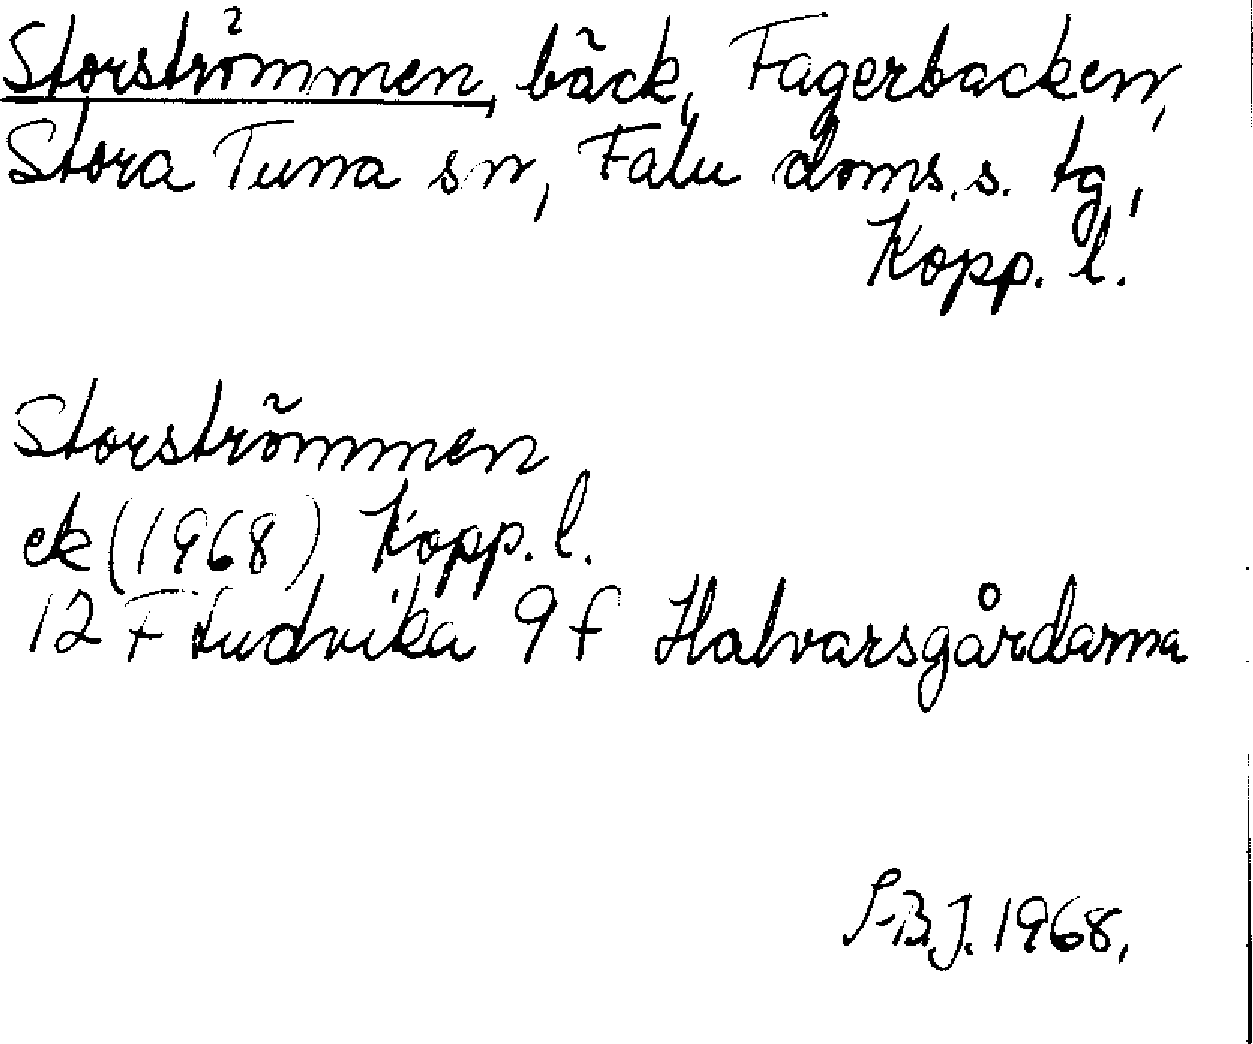 Storströmmen, bäck, Fagerbacken,
Stora Tuna sn, Falu doms. s. tg,
Kopp. l.
Storströmmen
ek (1968) Kopp. l.
12 F Ludvika 9 f Halvarsgårdarna
S-B.J. 1968.